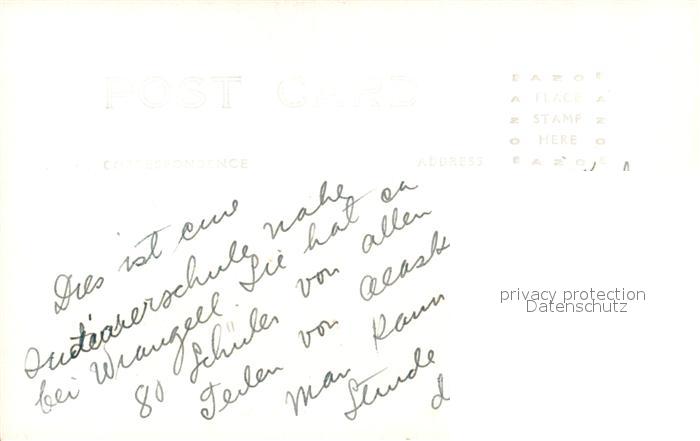 POST CARD
AZOE
A PLACE A
Z STAMP Z
O HERE O
CORRESPONDENCE ADDRESS
AZO
Dies ist eine
Indianerschule nahe
bei Wrangell. Sie hat ca
80 Schüler von allen
Teilen von Alask
Man kann
Stunde
d
privacy protection
Datenschutz